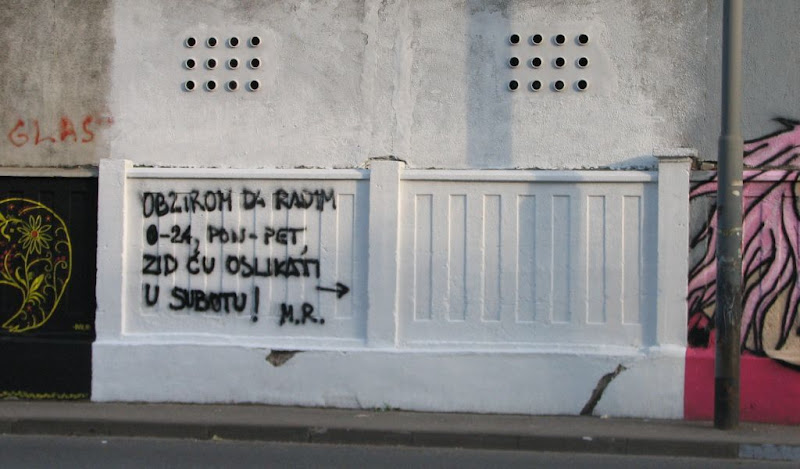 GLAS
OBZIROM DA RADIM
0-24, PON-PET,
ZID ĆU OSLIKATI
U SUBOTU!
M.R.